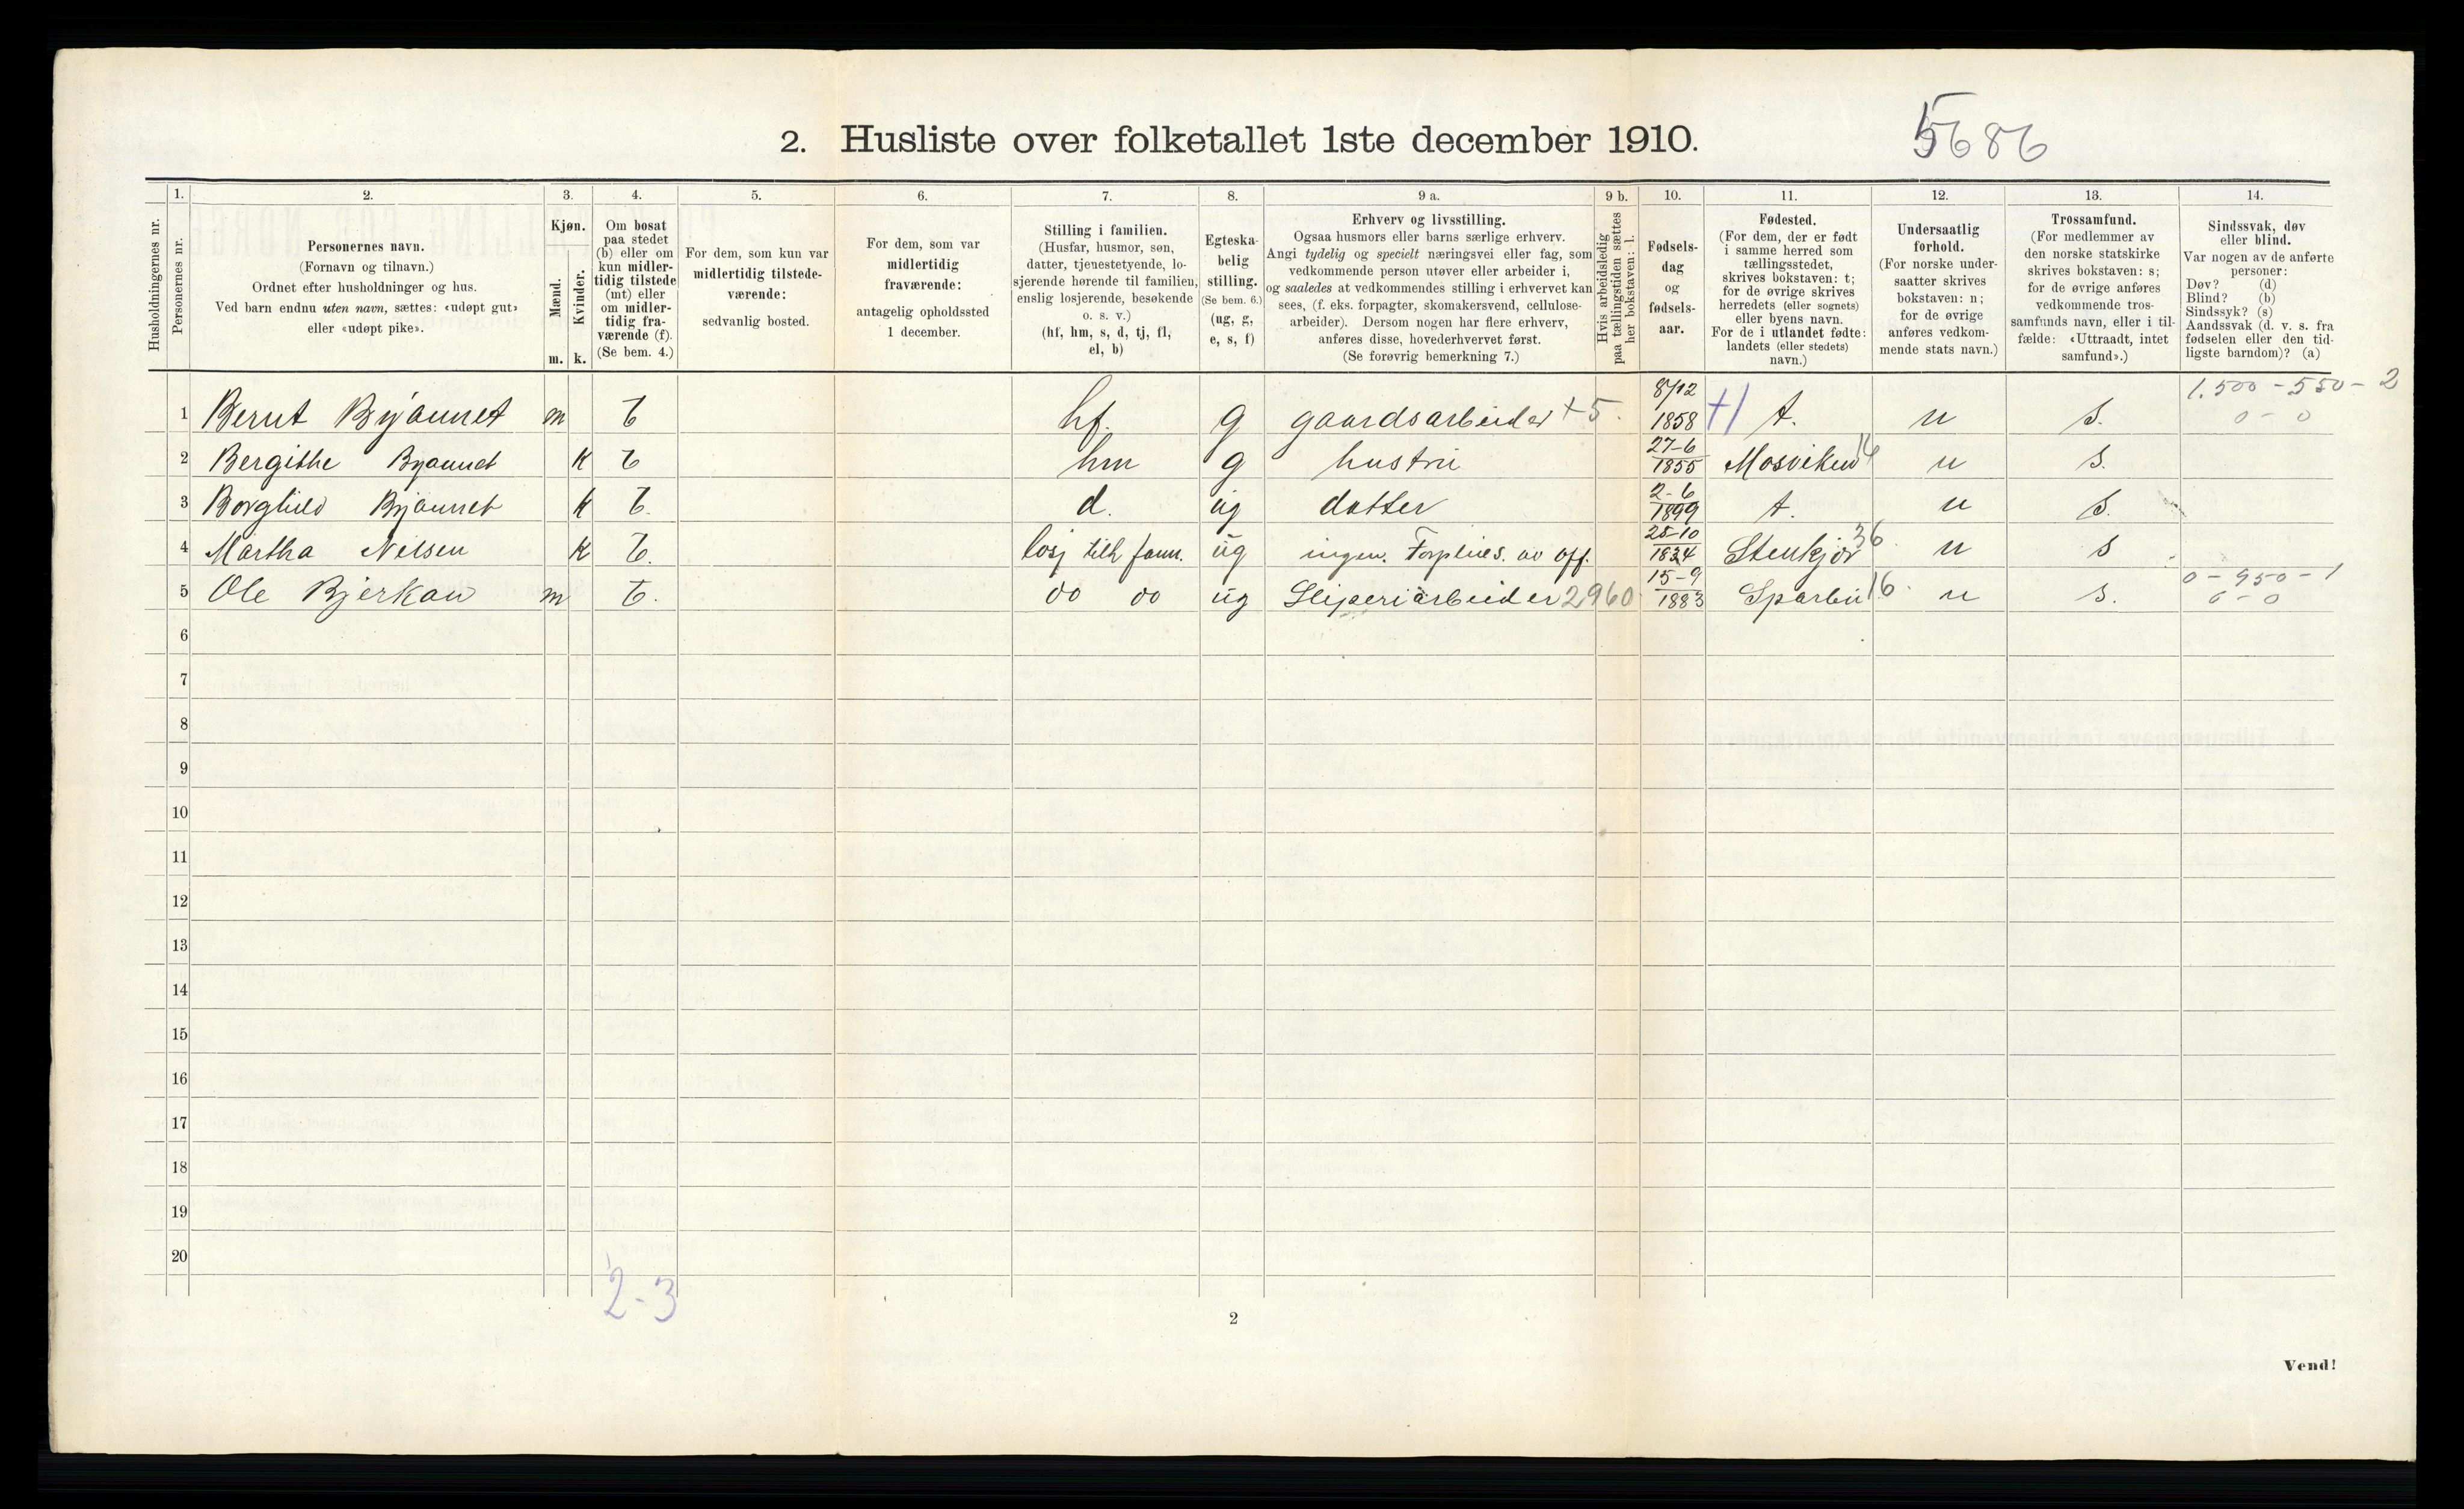 5686
2. Husliste over folketallet 1ste december 1910.
1. 2. 3. 4. 5. 6. 7. 8. 9 a. 9 b. 10. 11. 12. 13. 14.
Husholdningernes nr.
Personernes nr.
Personernes navn.
(Fornavn og tilnavn.)
Ordnet efter husholdninger og hus.
Ved barn endnu uten navn, sættes: «udøpt gut»
eller «udøpt pike».
Kjøn.
Mænd.
Kvinder.
m. k.
Om bosat
paa stedet
(b) eller om
kun midler-
tidig tilstede
(mt) eller
om midler-
tidig fra-
værende (f).
(Se bem. 4.)
For dem, som kun var
midlertidig tilstede-
værende:
sedvanlig bosted.
For dem, som var
midlertidig
fraværende:
antagelig opholdssted
1 december.
Stilling i familien.
(Husfar, husmor, søn,
datter, tjenestetyende, lo-
sjerende hørende til familien,
enslig losjerende, besøkende
o. s. v.)
(hf, hm, s, d, tj, fl,
el, b)
Egteska-
belig
stilling.
(Se bem. 6.)
(ug, g,
e, s, f)
Erhverv og livsstilling.
Ogsaa husmors eller barns særlige erhverv.
Angi tydelig og specielt næringsvei eller fag, som
vedkommende person utøver eller arbeider i,
og saaledes at vedkommendes stilling i erhvervet kan
sees, (f. eks. forpagter, skomakersvend, cellulose-
arbeider). Dersom nogen har flere erhverv,
anføres disse, hovederhvervet først.
(Se forøvrig bemerkning 7.)
Hvis arbeidsledig
paa tællingstiden sættes
her bokstaven: l.
Fødsels-
dag
og
fødsels-
aar.
Fødested.
(For dem, der er født
i samme herred som
tællingsstedet,
skrives bokstaven: t;
for de øvrige skrives
herredets (eller sognets)
eller byens navn.
For de i utlandet fødte:
landets (eller stedets)
navn.)
Undersaatlig
forhold.
(For norske under-
saatter skrives
bokstaven: n;
for de øvrige
anføres vedkom-
mende stats navn.)
Trossamfund.
(For medlemmer av
den norske statskirke
skrives bokstaven: s;
for de øvrige anføres
vedkommende tros-
samfunds navn, eller i til-
fælde: «Uttraadt, intet
samfund».)
Sindssvak, døv
eller blind.
Var nogen av de anførte
personer:
Døv? (d)
Blind? (b)
Sindssyk? (s)
Aandssvak (d. v. s. fra
fødselen eller den tid-
ligste barndom)? (a)
1 Bernt Bjaunet m b hf. g gaardsarbeider +5. 8/12 1858 t. n s. 1.500 - 550 - 2 0 - 0
2 Bergithe Bjaunet k b hm g hustru 27-6 1855 Mosviken 14 n s.
3 Borghild Bjaunet k b. d. ug datter 2-6 1899 t. n s.
4 Martha Nilsen k b. losj tilh fam. ug ingen. Forpleies. av off. 25-10 1834 Stenkjær 36 n s
5 Ole Bjerkan m b. do do ug Sliperiarbeider 2960 15-9 1883 Sparbu 16. n s. 0 - 950 - 1 0 - 0
6
7
8
9
10
11
12
13
14
15
16
17
18
19
20
2-3
2
Vend!